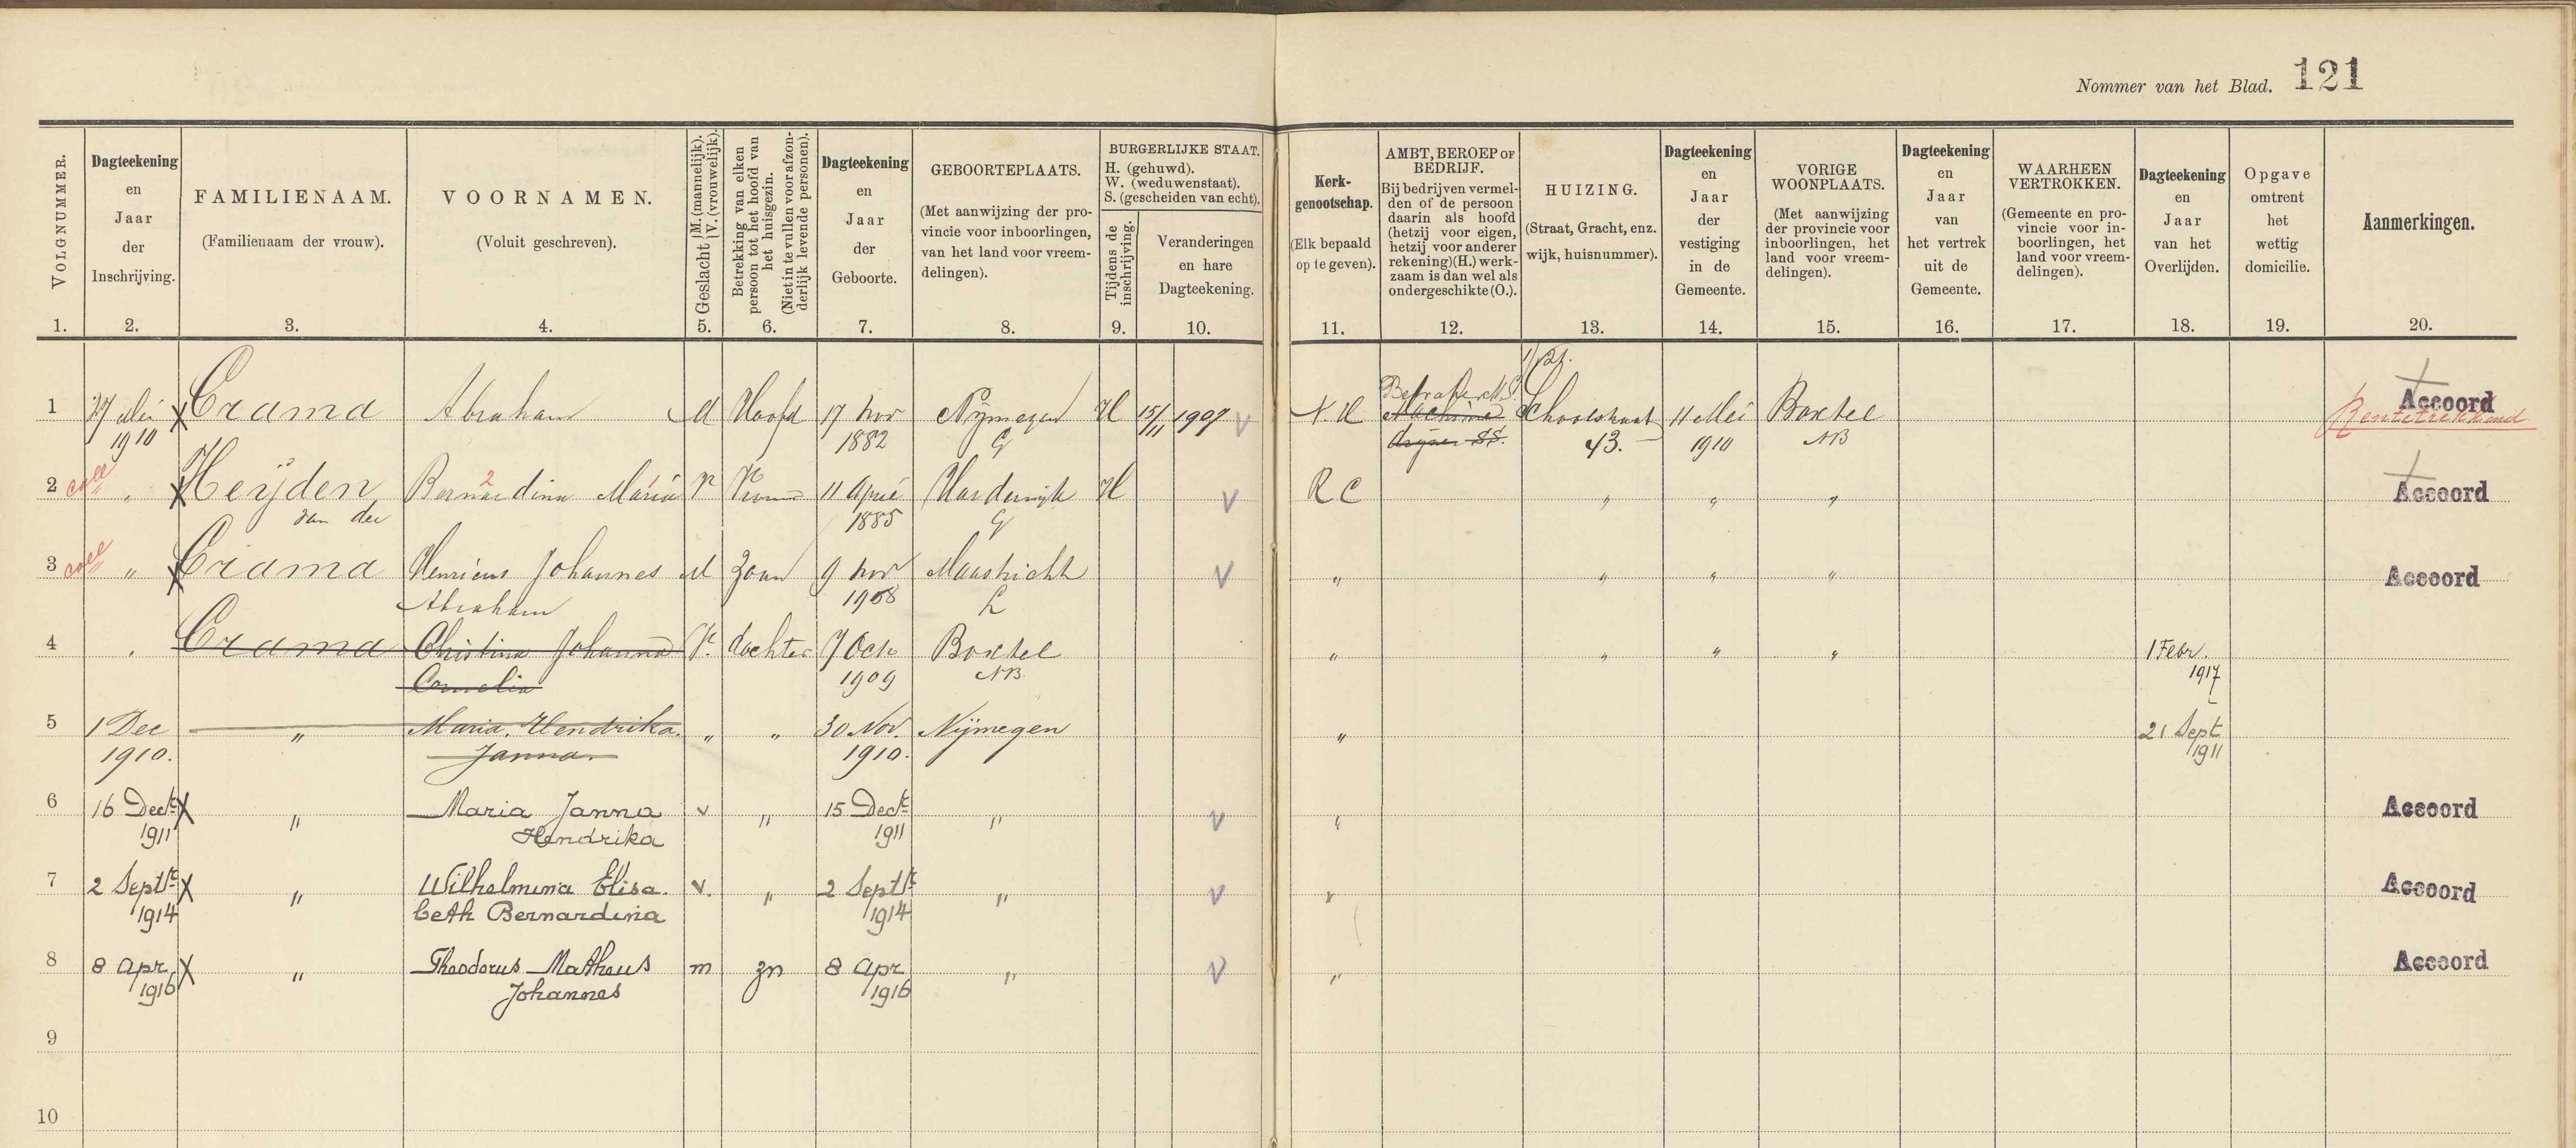 Nommer van het Blad. 121
VOLGNUMMER.
1.
Dagteekening
en
Jaar
der
Inschrijving.
2.
FAMILIENAAM.
(Familienaam der vrouw).
3.
VOORNAMEN.
(Voluit geschreven).
4.
Geslacht {M. (mannelijk). V. (vrouwelijk).
5.
Betrekking van elken
persoon tot het hoofd van
het huisgezin.
(Niet in te vullen voor afzon-
derlijk levende personen).
6.
Dagteekening
en
Jaar
der
Geboorte.
7.
GEBOORTEPLAATS.
(Met aanwijzing der pro-
vincie voor inboorlingen,
van het land voor vreem-
delingen).
8.
BURGERLIJKE STAAT.
H. (gehuwd).
W. (weduwenstaat).
S. (gescheiden van echt).
Tijdens de
inschrijving.
9.
Veranderingen
en hare
Dagteekening.
10.
Kerk-
genootschap.
(Elk bepaald
op te geven).
11.
AMBT, BEROEP OF
BEDRIJF.
Bij bedrijven vermel-
den of de persoon
daarin als hoofd
(hetzij voor eigen,
hetzij voor anderer
rekening) (H.) werk-
zaam is dan wel als
ondergeschikte (O.).
12.
HUIZING.
(Straat, Gracht, enz.
wijk, huisnummer).
13.
Dagteekening
en
Jaar
der
vestiging
in de
Gemeente.
14.
VORIGE
WOONPLAATS.
(Met aanwijzing
der provincie voor
inboorlingen, het
land voor vreem-
delingen).
15.
Dagteekening
en
Jaar
van
het vertrek
uit de
Gemeente.
16.
WAARHEEN
VERTROKKEN.
(Gemeente en pro-
vincie voor in-
boorlingen, het
land voor vreem-
delingen).
17.
Dagteekening
en
Jaar
van het
Overlijden.
18.
Opgave
omtrent
het
wettig
domicilie.
19.
Aanmerkingen.
20.
1 27 Mei X Crama Abraham M Hoofd 17 Nov Nijmegen H 15/11 1907 V N.H Schoolstraat 11 Mei Boxtel Accoord
1910 1882 G 43. 1910 NB
2 " X Heijden Bernardina Maria V Vrouw 11 April Harderwijk H V RC " " " Accoord
van der 1885 G
3 " X Crama Henricus Johannes M Zoon 9 Nov Maastricht V " " " " Accoord
Abraham 1908 L
4 " Crama Christina Johanna V. dochter 7 Oct Boxtel " " " " 1 Febr.
Cornelia 1909 NB 1917
5 1 Dec " Maria Hendrika " " 30 Nov. Nijmegen " 21 Sept
1910. Janna. 1910. 1911
6 16 Decbr X " Maria Janna v " 15 Decbr " V " Accoord
1911 Hendrika 1911
7 2 Septbr X " Wilhelmina Elisa v. " 2 Septbr " V " Accoord
1914 beth Bernardina 1914
8 8 Apr X " Theodorus Matheus m zn 8 Apr " V " Accoord
1916 Johannes 1916
9
10